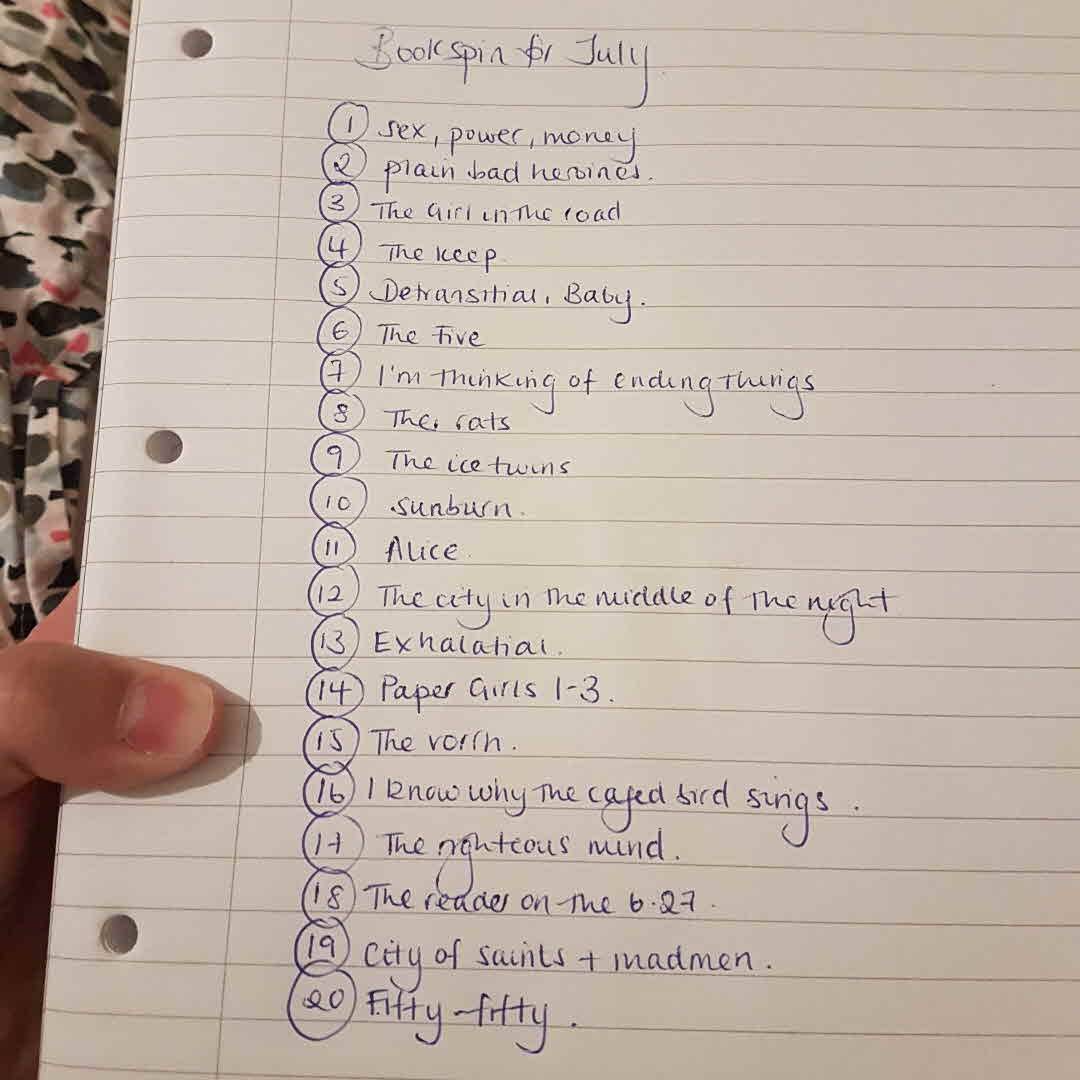 Bookspin for July
1 sex, power, money
2 plain bad heroines.
3 The Girl in the road
4 The keep
5 Detransition, Baby.
6 The Five
7 I'm thinking of ending things
8 The rats
9 The ice twins
10 sunburn.
11 Alice
12 The city in the middle of the night
13 Exhalation.
14 Paper Girls 1-3.
15 The vorrh.
16 I know why the caged bird sings.
17 The righteous mind.
18 The reader on the 6.27.
19 City of saints + madmen.
20 Fifty-fifty.